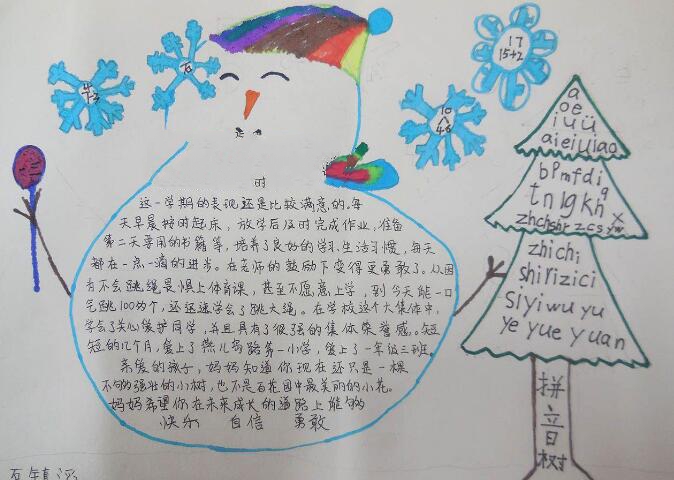 17
15+2
石
10
4 6
时
这一学期的表现还是比较满意的,每
天早晨按时起床,放学后及时完成作业,准备
第二天要用的书籍等,培养了良好的学习生活习惯,每天
都在一点一滴的进步。在老师的鼓励下变得更勇敢了。从因
为不会跳绳是惧上体育课,甚至不愿意上学,到今天能一口
气跳100为个,还迅速学会了跳大绳。在学校这个大集体中,
学会了关心爱护同学,并且具有了很强的集体荣誉感。短
短的几个月,爱上了燕儿岛路第一小学,爱上了一年级三班。
亲爱的孩子,妈妈知道你现在还只是一棵
不够强壮的小树,也不是百花园中最美丽的小花。
妈妈希望你在未来成长的道路上能够
快乐 自信 勇敢
a
o e
i u ü
ai ei ui ao
b p m f d
t n l g k h
q
x
zh ch sh r z c s y w
zhi chi
shi ri zi ci
si yi wu yu
ye yue yuan
拼
音
树